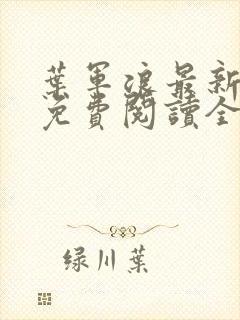 葉軍浪最新
免費閱讀全
绿川葉